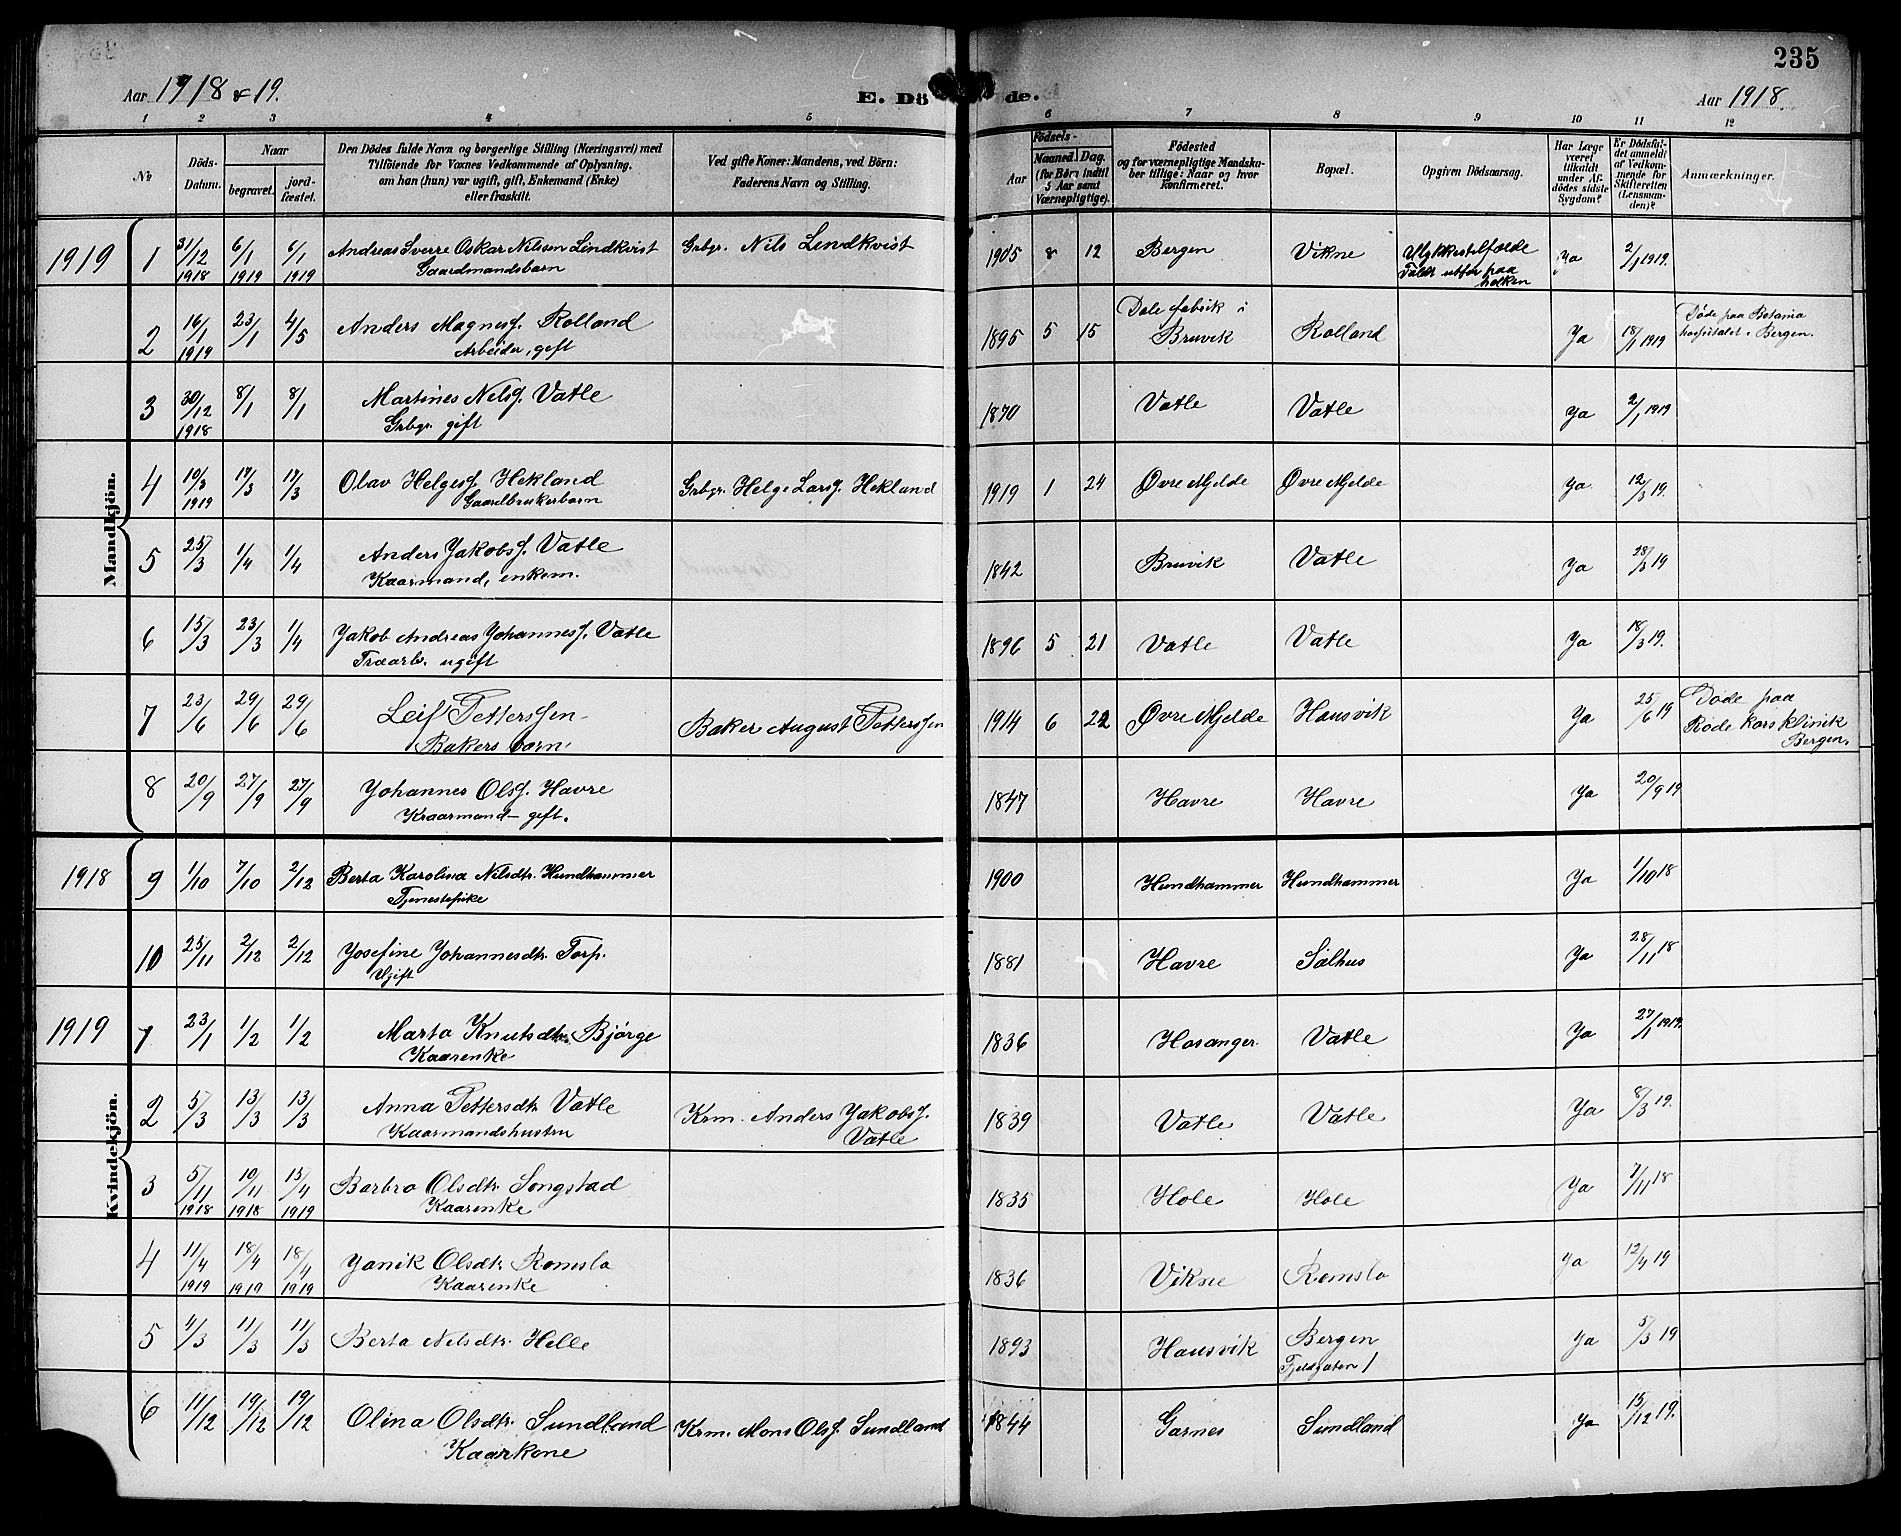 235
Aar 1918 & 19.
E. Dö de.
Aar 1918
1 2 3 4 5 6 7 8 9 10 11 12
No
Döds-Datum.
Naar
begravet.
jord-fæstet.
Den Dödes fulde Navn og borgerlige Stilling (Næringsvei) med
Tilföiende for Voxnes Vedkommende af Oplysning,
om han (hun) var ugift, gift, Enkemand (Enke)
eller fraskilt.
Ved gifte Koner: Mandens, ved Börn:
Faderens Navn og Stilling.
Födsels-
Aar
Maaned. Dag.
(for Börn indtil
5 Aar samt
Værnepligtige).
Födested
og for værnepligtige Mandska-
ber tillige: Naar og hvor
konfirmeret.
Bopæl.
Opgiven Dödsaarsag.
Har Læge
været
tilkaldt
under Af-
dödes sidste
Sygdom?
Er Dödsfal-
det anmeldt
af Vedkom-
mende for
Skifteretten
(Lensman-
den)?
Anmærkninger.
Mandkjön.
1919 1 31/12 1918 6/1 1919 6/1 1919 Andreas Sverre Oskar Nilsen Lindkvist Grbgr. Nils Lindkvist 1905 8 12 Bergen Vikne Ulykkestilfælde Ja 2/1 1919.
Gaardmandsbarn Faldt utfor paa
holken
2 16/1 1919 23/1 4/5 Anders Magnesf. Rolland 1895 5 15 Dale fabrik i Bruvik Rolland Ja 18/1 1919 Døde paa Betania
Arbeider, gift hospitalet i Bergen.
3 30/12 1918 8/1 8/1 Martines Nilsf. Vatle 1870 Vatle Vatle Ja 2/1 1919
Grbgr. gift
4 10/3 1919 17/3 17/3 Olav Helgesf. Hekland Grbgr. Helge Larsf. Hekland 1919 1 24 Øvre Mjelde Øvre Mjelde Ja 12/3 19.
Gaardbrukerbarn
5 25/3 1/4 1/4 Anders Jakobsf. Vatle 1842 Bruvik Vatle Ja 28/3 19
Kaarmand, enkem.
6 15/3 23/3 1/4 Jakob Andreas Johannesf. Vatle 1896 5 21 Vatle Vatle Ja 18/3 19.
Træarb. ugift
7 23/6 29/6 29/6 Leif Petterssen Baker August Petterssen 1914 6 22 Øvre Mjelde Hausvik Ja 25/6 19 Døde paa
Bakers barn. Røde kors klinik
Bergen.
8 20/9 27/9 27/9 Johannes Olsf. Havre 1847 Havre Havre Ja 20/9 19
Kraarmand - gift.
Kvindekjön.
1918 9 1/10 7/10 2/12 Berta Karolina Nilsdtr. Hundhammer 1900 Hundhammer Hundhammer Ja 1/10 18
Tjenestepike
10 25/11 2/12 2/12 Josefine Johannesdtr. Torp. 1881 Havre Salhus Ja 28/11 18
Ugift
1919 1 23/1 1/2 1/2 Marta Knutsdtr. Bjørge 1836 Hosanger. Vatle Ja 27/1 1919.
Kaarenke
2 5/3 13/3 13/3 Anna Pettersdtr. Vatle Krm. Anders Jakobsf. 1839 Vatle Vatle Ja 8/3 19.
Kaarmandshustru Vatle
3 5/11 1918 10/11 1918 15/4 1919 Barbro Olsdtr. Songstad 1835 Hole Hole Ja 7/11 18
Kaarenke
4 11/4 1919 18/4 1919 18/4 1919 Janik Olsdtr. Romslo 1836 Vikne Romslo Ja 12/4 19
Kaarenke
5 4/3 11/3 11/3 Berta Nilsdtr. Helle 1893 Hausvik Bergen Ja 5/3 19
6 11/12 19/12 19/12 Olina Olsdtr. Sundland Krm. Mons Olsf. Sundland 1844 Garnes Sundland Ja 15/12 19.
Kaarkone